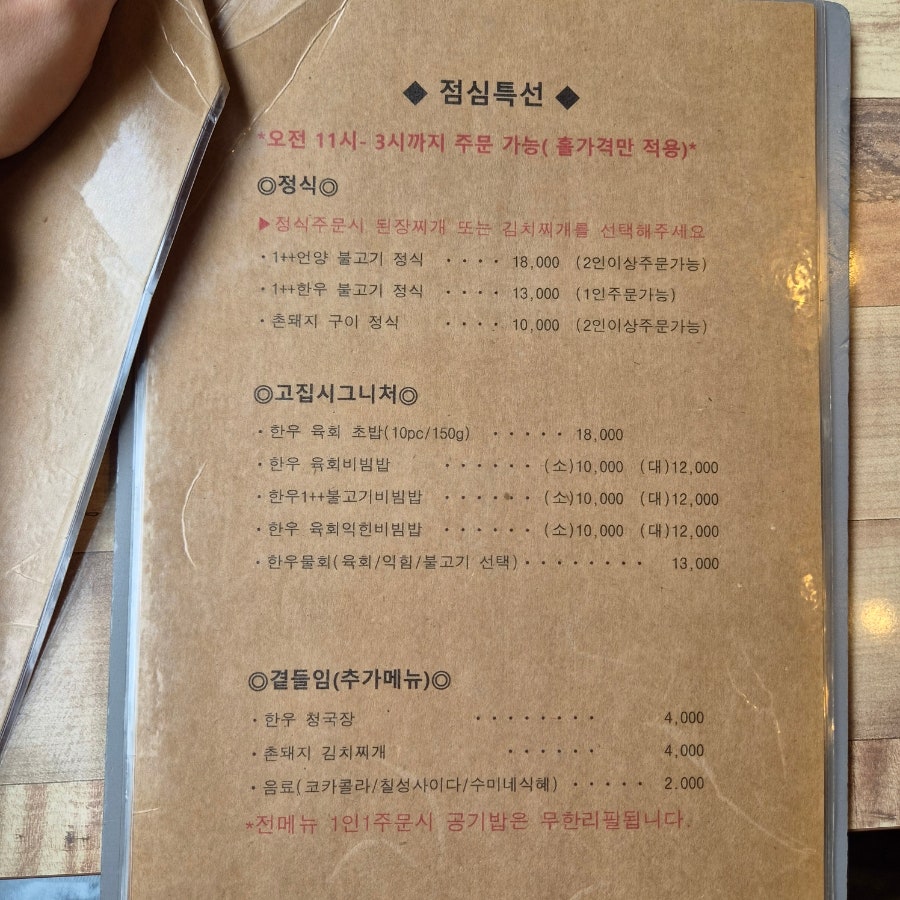 ◆ 점심특선 ◆
*오전 11시- 3시까지 주문 가능( 홀가격만 적용)*
◎정식◎
▶정식주문시 된장찌개 또는 김치찌개를 선택해주세요
· 1++언양 불고기 정식 ···· 18,000 (2인이상주문가능)
· 1++한우 불고기 정식 ···· 13,000 (1인주문가능)
· 촌돼지 구이 정식 ···· 10,000 (2인이상주문가능)
◎고집시그니처◎
· 한우 육회 초밥(10pc/150g) ····· 18,000
· 한우 육회비빔밥 ······ (소)10,000 (대)12,000
· 한우1++불고기비빔밥 ······ (소)10,000 (대)12,000
· 한우 육회익힌비빔밥 ······ (소)10,000 (대)12,000
· 한우물회(육회/익힘/불고기 선택)········ 13,000
◎곁들임(추가메뉴)◎
· 한우 청국장 ········ 4,000
· 촌돼지 김치찌개 ······ 4,000
· 음료(코카콜라/칠성사이다/수미네식혜) ····· 2.000
*전메뉴 1인1주문시 공기밥은 무한리필됩니다.